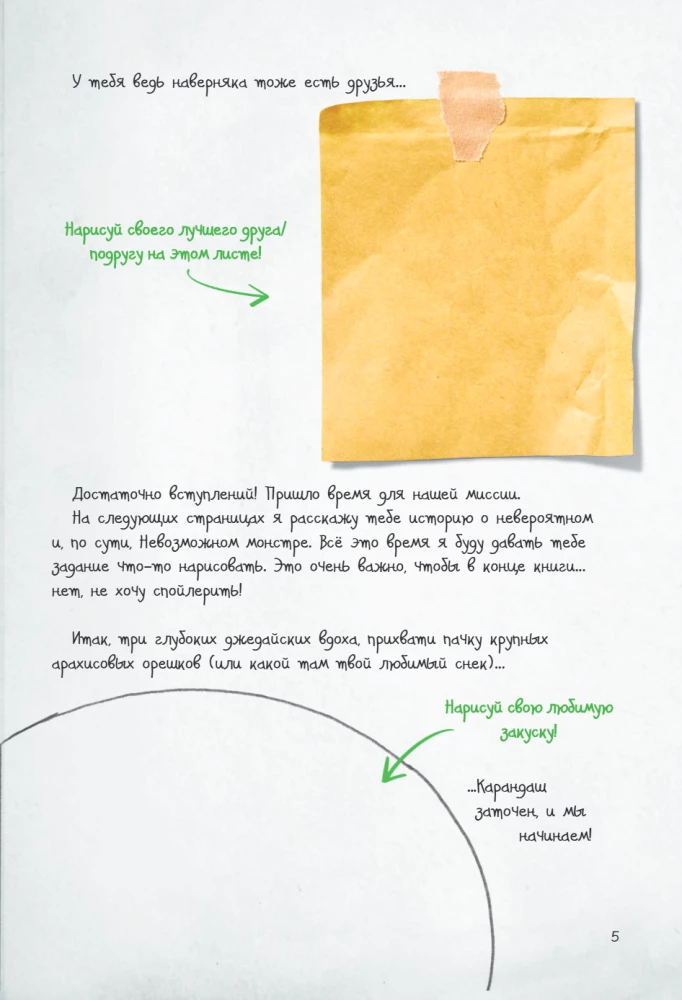 У тебя ведь наверняка тоже есть друзья...
Нарисуй своего лучшего друга/
подругу на этом листе!
Достаточно вступлений! Пришло время для нашей миссии.
На следующих страницах я расскажу тебе историю о невероятном
и, по сути, Невозможном монстре. Всё это время я буду давать тебе
задание что-то нарисовать. Это очень важно, чтобы в конце книги...
нет, не хочу спойлерить!
Итак, три глубоких джедайских вдоха, прихвати пачку крупных
арахисовых орешков (или какой там твой любимый снек)...
Нарисуй свою любимую
закуску!
...Карандаш
заточен, и мы
начинаем!
5